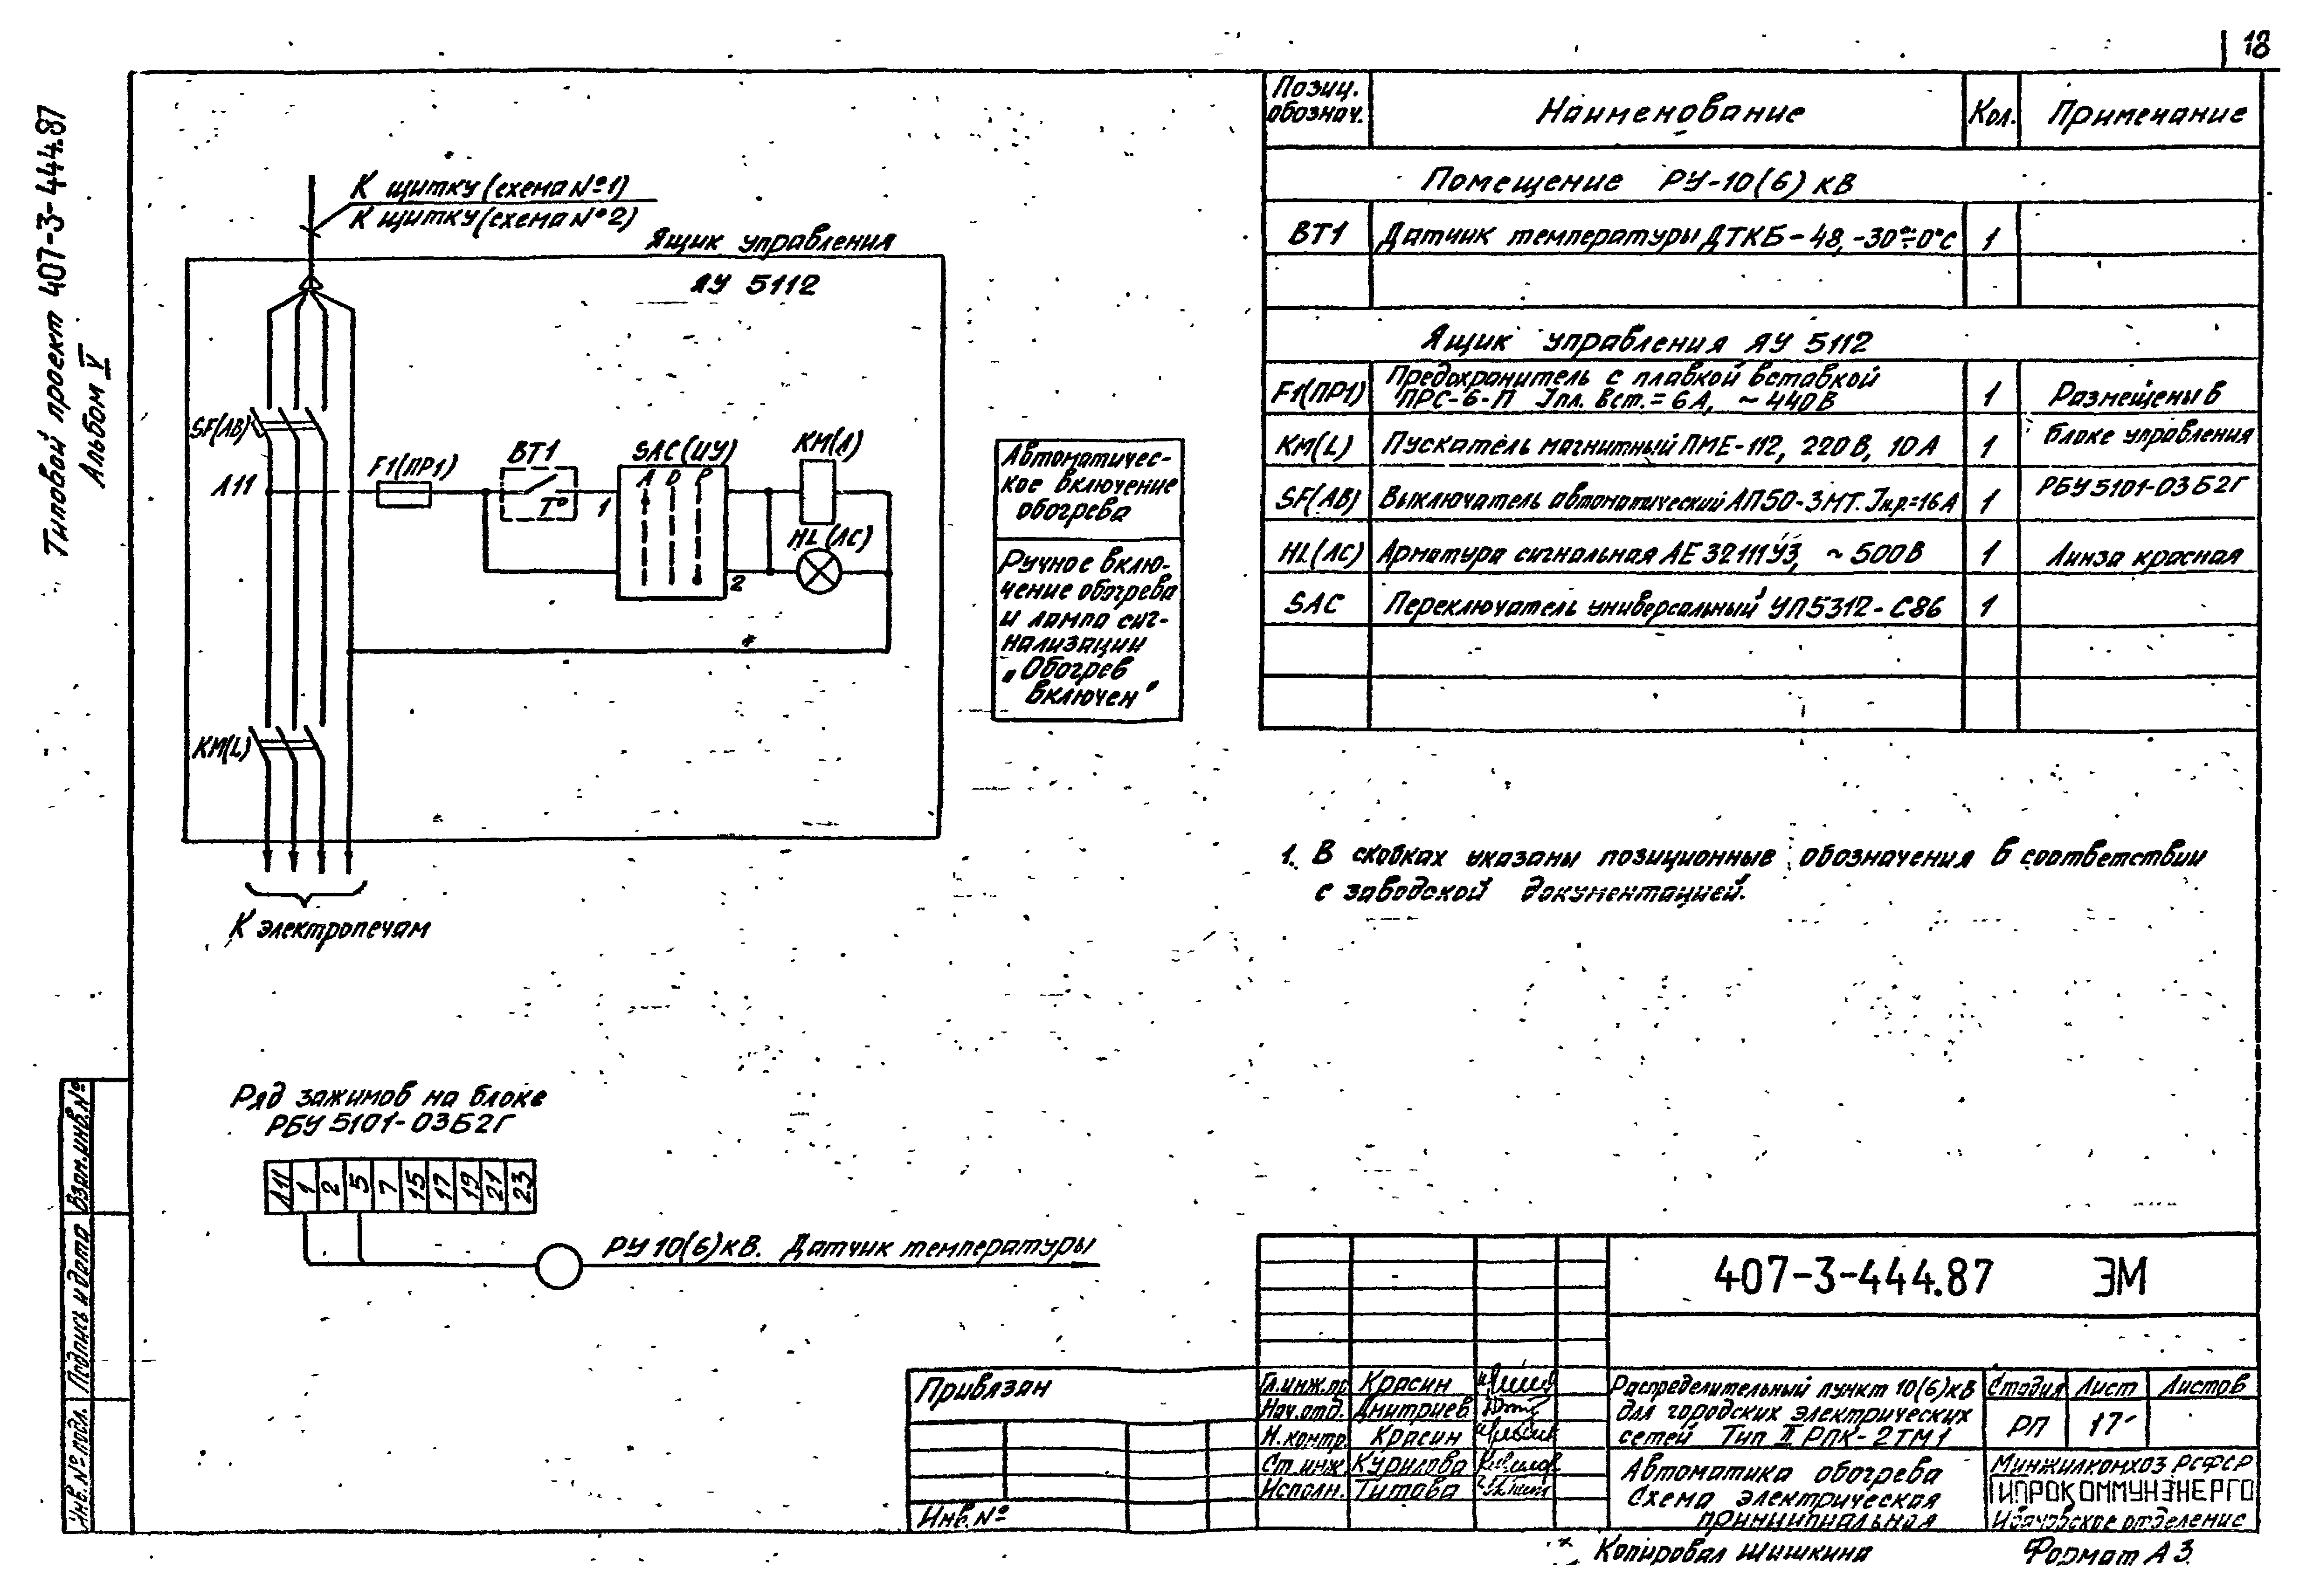 18
Типовой проект 407-3-444.87
Альбом V
К щитку (схема №1)
К щитку (схема №2)
Ящик управления
ЯУ 5112
SF(АВ)
Л11
F1(ПР1)
ВТ1
Т°
SAC(ИУ)
А О Р
1
2
КМ(Л)
HL(ЛС)
КМ(L)
К электропечам
Автоматичес-
кое включение
обогрева
Ручное вклю-
чение обогрева
и лампа сиг-
нализации
„Обогрев
включен"
Позиц. обознач. Наименование Кол. Примечание
Помещение РУ-10(6) кВ
ВТ1 Датчик температуры ДТКБ-48,-30°÷0°С 1
Ящик управления ЯУ 5112
F1(ПР1) Предохранитель с плавкой вставкой ПРС-6-П Iпл. вст.=6А, ~440В 1 Размещены в
КМ(L) Пускатель магнитный ПМЕ-112, 220В, 10А 1 блоке управления
SF(АВ) Выключатель автоматический АП50-3МТ. Iн.р.=16А 1 РБУ5101-03Б2Г
HL(ЛС) Арматура сигнальная АЕ32111У3, ~500В 1 Линза красная
SAC Переключатель универсальный УП5312-С86 1
1. В скобках указаны позиционные обозначения в соответствии
с заводской документацией.
Ряд зажимов на блоке
РБУ 5101-03Б2Г
Л11 1 2 5 7 15 17 19 21 23
РУ 10(6)кВ. Датчик температуры
Инв.№ подл. Подпись и дата Взам.инв.№
Привязан
Инв.№
407-3-444.87 ЭМ
Гл.инж.пр Красин
Нач.отд. Дмитриев
Н.контр. Красин
Ст.инж. Курилова
Исполн. Титова
Распределительный пункт 10(6)кВ
для городских электрических
сетей Тип II РПК-2ТМ1
Стадия Лист Листов
РП 17
Автоматика обогрева
Схема электрическая
принципиальная
Минжилкомхоз РСФСР
ГИПРОКОММУНЭНЕРГО
Ивановское отделение
Копировал Шишкина
Формат А3